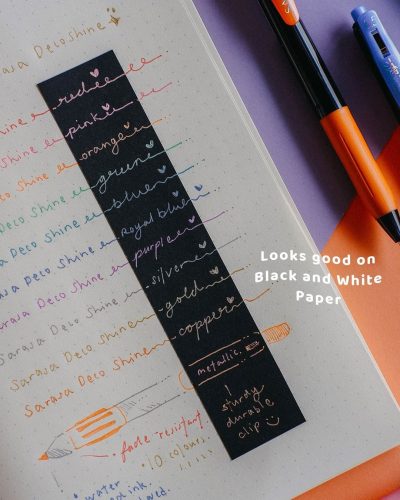 asa DecoShine
hine red
shine pink
Shine orange
Deco Shine green
Deco Shine blue
Deco Shine Royal blue
Sarasa Deco Shine purple
Sarasa Deco Shine silver
Sarasa Deco Shine gold
Sarasa Deco Shine copper
metallic.
sturdy
durable
clip
fade resistant
10 colours.
water
ink.
Looks good on
Black and White
Paper